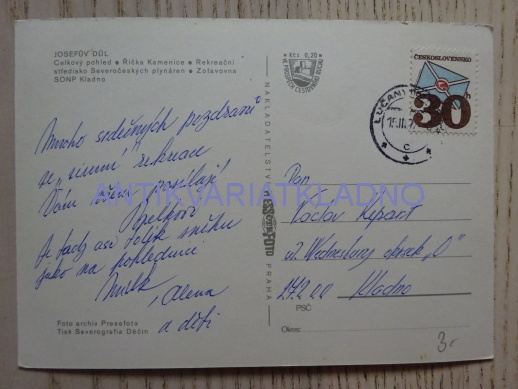 JOSEFŮV DŮL
Celkový pohled • Říčka Kamenice • Rekreační
středisko Severočeských plynáren • Zotavovna
SONP Kladno
Mnoho srdečných pozdravů
ze „zimní" rekreace
Vám všem posílají
Je tady asi tolik sněhu
jako na pohlednici
Mirek, Alena
a děti
Foto archiv Pressfoto
Tisk Severografia Děčín
NAKLADATELSTVÍ PRESSFOTO PRAHA
Kčs 0,20
ČESKOSLOVENSKO
30
LUČANY
15.II.
Pan
Václav
ul. Wednesbury "O"
272 00 Kladno
PSČ
Okres:
3-
ANTIKVARIATKLADNO